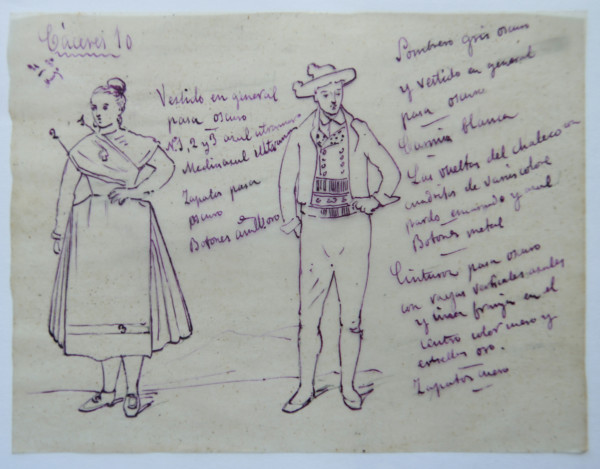 Cáceres 10
Vestido en general
pasa oscuro
Nº 1, 2 y 3 azul ultramar
Medias azul ultramar
Zapatos pasa
oscuro
Botones anillo oro
1
2
3
Sombrero gris oscuro
y vestido en general
pasa oscuro
Camisa blanca
Las vueltas del chaleco con
cuadritos de varios colores
pardo encarnado y azul
Botones metal
Cintura pasa oscuro
con rayas verticales azules
y una franja en el
centro color cuero y
estrellas oro.
Zapatos cuero